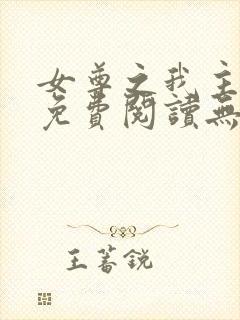 女尊之我主
免費閱讀無
王蕃銳